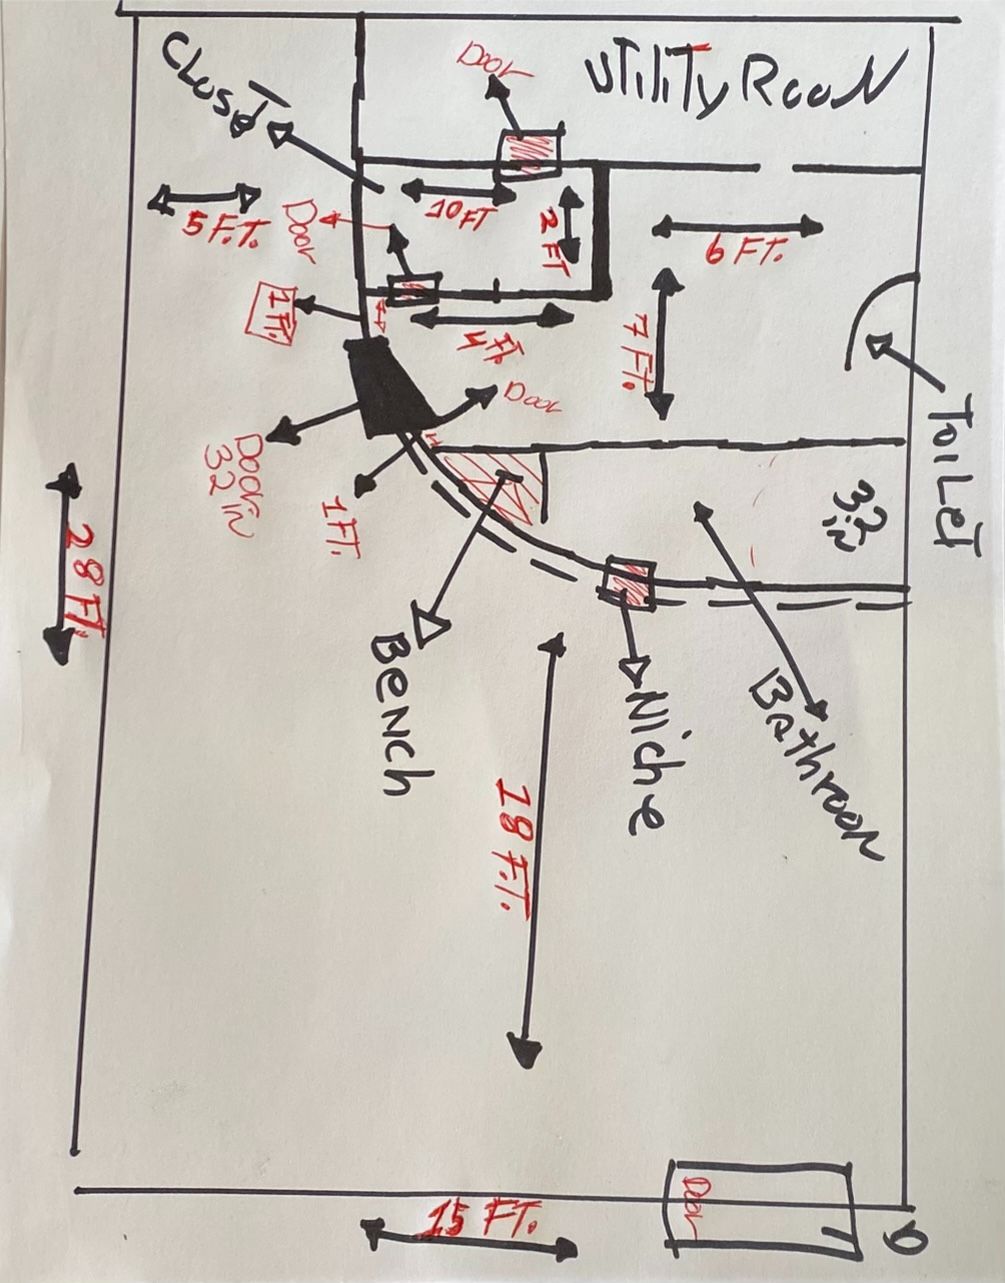 CLOSET
Door
UTiliTy RooM
5 F.T.
Door
10 FT
2 FT
6 FT.
1 Ft.
4 Ft.
7 FT.
Door
Door
32 in
1 FT.
32
in
ToiLeT
28 FT.
BeNCh
Niche
Bathroom
18 F.T.
15 FT.
Door